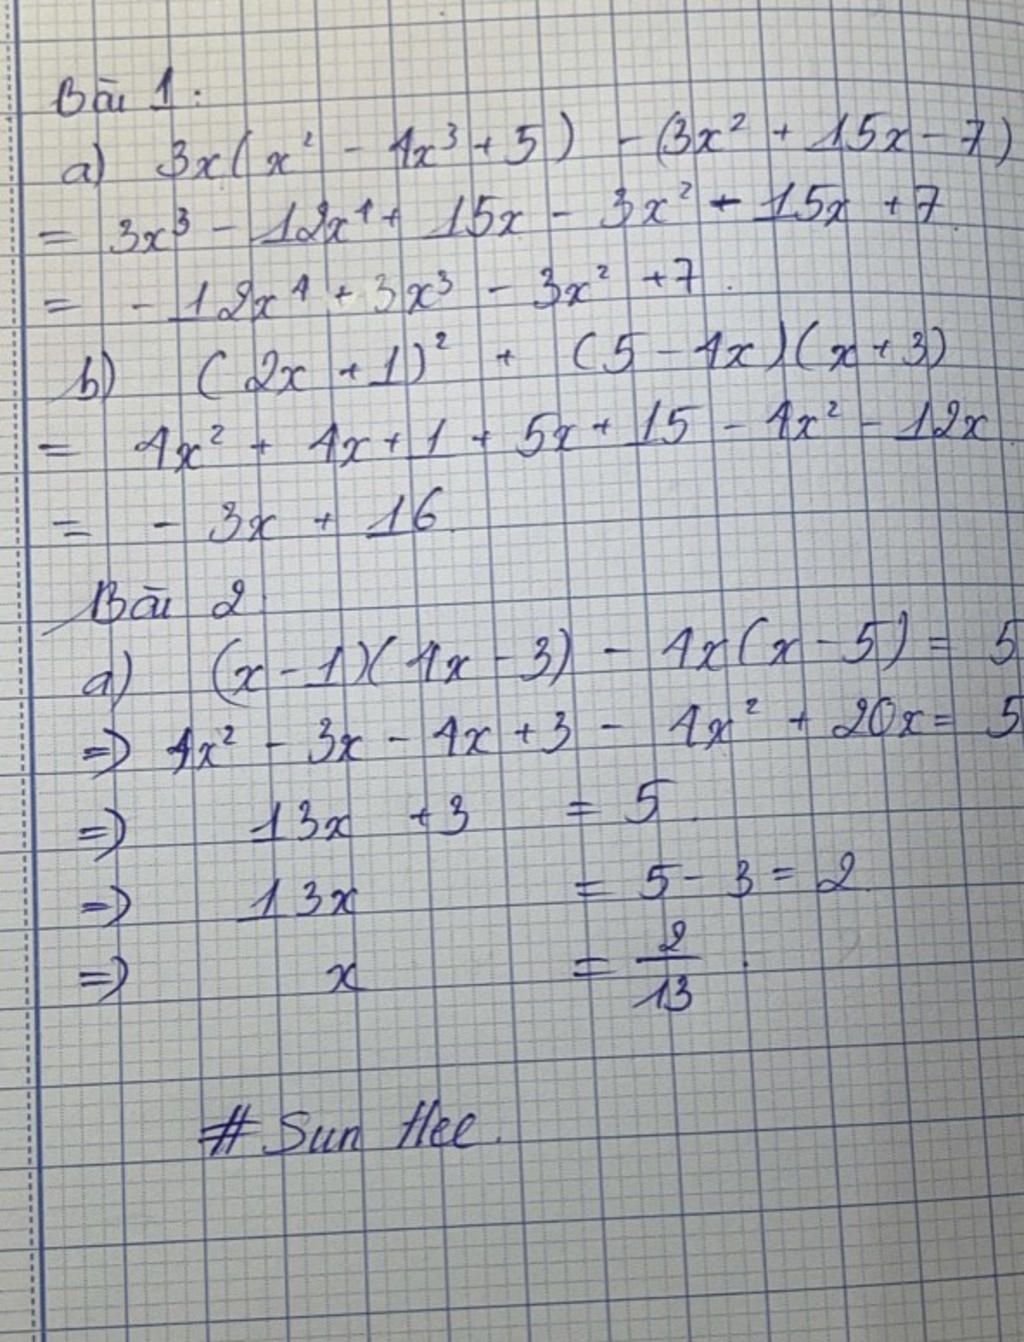 Bài 1:
a) 3x(x² - 4x³ + 5) - (3x² + 15x - 7)
= 3x³ - 12x⁴ + 15x - 3x² - 15x + 7
= - 12x⁴ + 3x³ - 3x² + 7.
b) (2x + 1)² + (5 - 4x)(x + 3)
= 4x² + 4x + 1 + 5x + 15 - 4x² - 12x
= - 3x + 16
Bài 2
a) (x - 1)(4x - 3) - 4x(x - 5) = 5
=> 4x² - 3x - 4x + 3 - 4x² + 20x = 5
=> 13x + 3 = 5
=> 13x = 5 - 3 = 2
=> x = 2/13.
# Sun Hee.